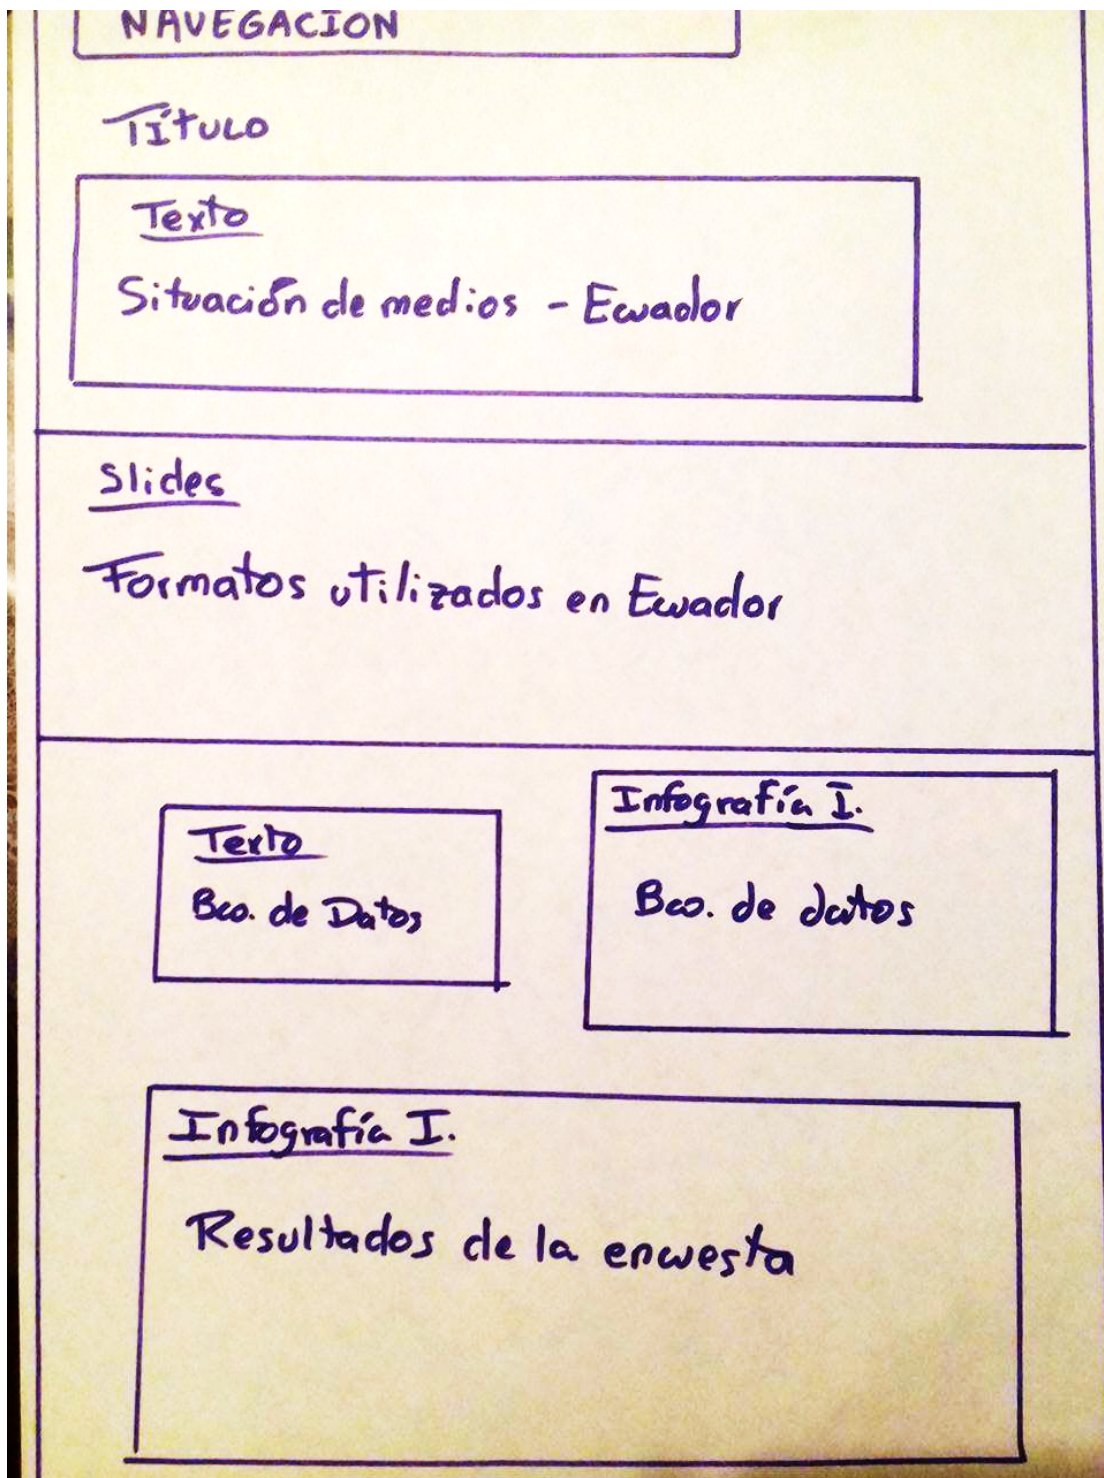 NAVEGACION
TÍTULO
Texto
Situación de medios - Ecuador
Slides
Formatos utilizados en Ecuador
Texto
Bco. de Datos
Infografía I.
Bco. de datos
Infografía I.
Resultados de la encuesta